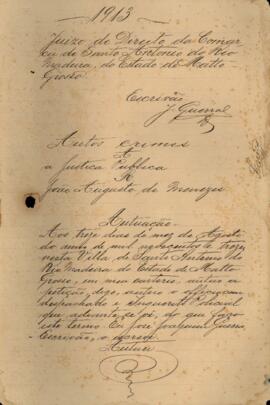 1913
Juizo de Direito da Comar
ca de Santo Antonio do Rio
Madeira, do Estado de Matto
Grosso
Escrivão
J. Guerra
Autos crimes
A
a Justiça Publica
R
João Augusto de Menezes
Autuação
Aos treze dias do mez de Agosto
do anno de mil novecentos e treze,
nesta Villa de Santo Antonio do
Rio Madeira do Estado de Matto
Grosso, em meu cartorio, autuo a
petição, digo, autuo o
despachado e inquerito Policial
que adiante se vê, do que faço
este termo. Eu José Joaquim Guerra
Escrivão, o